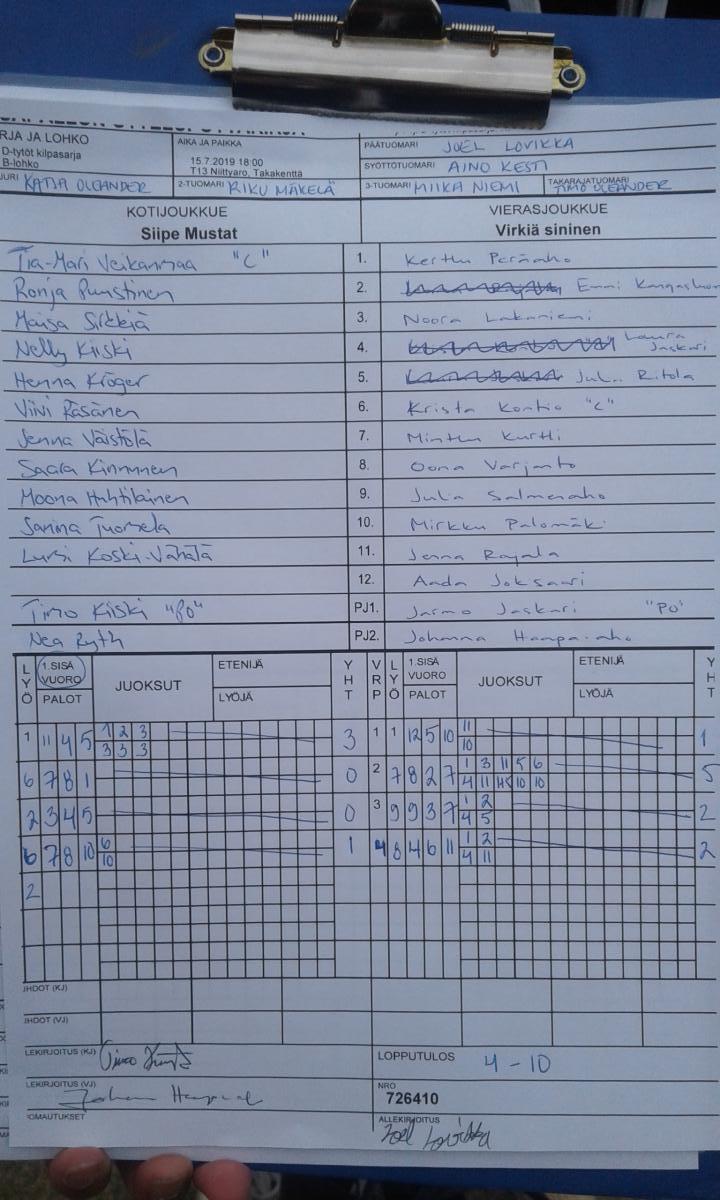 RJA JA LOHKO
D-tytöt kilpasarja
B-lohko
AIKA JA PAIKKA
15.7.2019 18:00
T13 Niittyaro, Takakenttä
PÄÄTUOMARI JOEL LOVIKKA
SYÖTTÖTUOMARI AINO KESTI
JURI KATJA OLEANDER
2-TUOMARI RIKU MÄKELÄ
3-TUOMARI MIIKA NIEMI
TAKARAJATUOMARI TIMO OLEANDER
KOTIJOUKKUE
Siipe Mustat
VIERASJOUKKUE
Virkiä sininen
Tia-Mari Veikanmaa "C" 1. Kerttu Peräaho
Ronja Puustinen 2. Emmi
3. Noora Lakaniemi
Nelly Kiiski 4. Laura Jaskari
Henna Kröger 5. Ritola
Viivi Räsänen 6. Krista Kontio "C"
Jenna Väistölä 7. Minttu Kurtti
Saara Kinnunen 8. Oona Varjanto
Moona Huhtilainen 9. Julia Salmenaho
Sanina Tuomela 10. Mirkku Palomäki
Koski-Vähälä 11. Jenna Rajala
12. Aada Joksaari
Timo Kiiski "PO" PJ1. Jarmo Jaskari "PO"
Nea Ryth PJ2. Johanna Haapa-aho
LYÖ 1.SISÄ VUORO PALOT JUOKSUT ETENIJÄ LYÖJÄ YHT VRP LYÖ 1.SISÄ VUORO PALOT JUOKSUT ETENIJÄ LYÖJÄ YHT
1 11 4 5 1 2 3 3 1 1 12 5 10 11 1
3 3 3 10
6 7 8 1 0 2 7 8 2 7 1 3 11 5 6 5
4 11 10 10
2 3 4 5 0 3 9 9 3 7 1 2 2
4 5
6 7 8 10 6 1 4 8 4 6 11 1 2 2
10 4 11
2
JHDOT (KJ)
JHDOT (VJ)
LEKIRJOITUS (KJ)
LOPPUTULOS 4 - 10
LEKIRJOITUS (VJ)
NRO
726410
UOMAUTUKSET
ALLEKIRJOITUS
Joel Lovikka